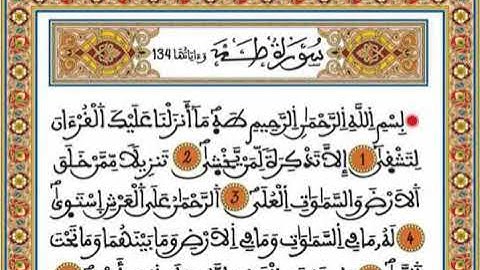 سُورَةُ طَهَ وَءَايَاتُهَا 134
بِسْمِ اِ۬للَّهِ اِ۬لرَّحْمَٰنِ اِ۬لرَّحِيمِ طَهَۖ مَآ أَنزَلْنَا عَلَيْكَ اَ۬لْقُرْءَانَ
لِتَشْق۪يٰٓ 1 إِلَّا تَذْكِرَةٗ لِّمَنْ يَّخْش۪يٰۖ 2 تَنزِيلاٗ مِّمَّنْ خَلَقَ
اَ۬لَارْضَ وَالسَّمَٰوَٰتِ اِ۬لْعُلَيۖ 3 اَ۬لرَّحْمَٰنُ عَلَي اَ۬لْعَرْشِ اِ۪سْتَو۪يٰۖ
4 لَهُۥ مَا فِے اِ۬لسَّمَٰوَٰتِ وَمَا فِے اِ۬لَارْضِ وَمَا بَيْنَهُمَا وَمَا تَحْتَ